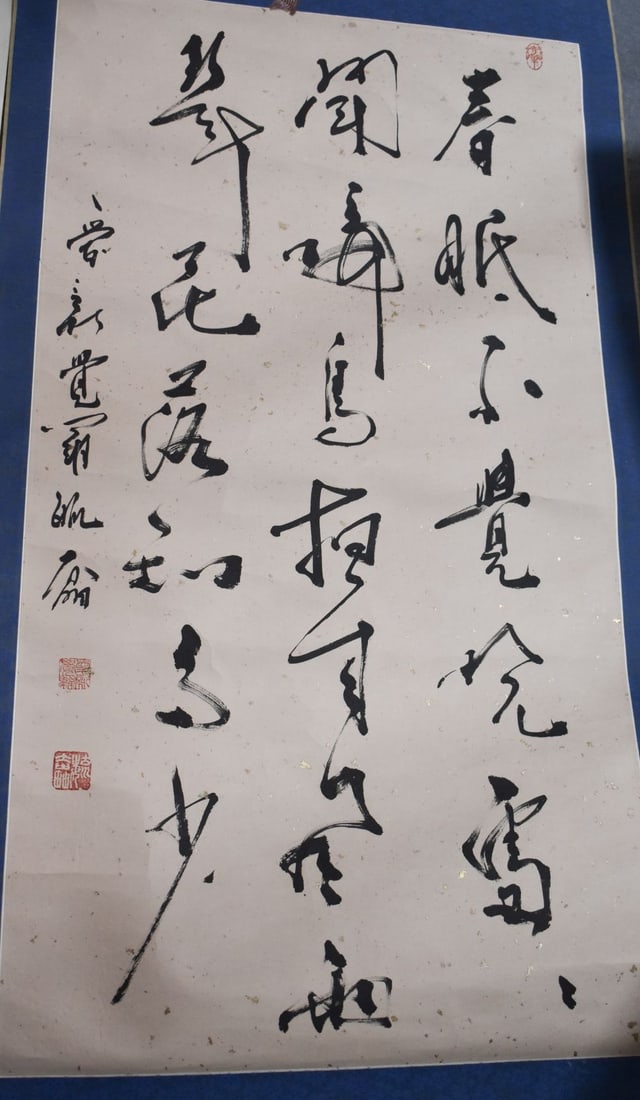 春眠不覺曉處々
聞啼鳥夜来風雨
聲花落知多少
愛新覺羅毓